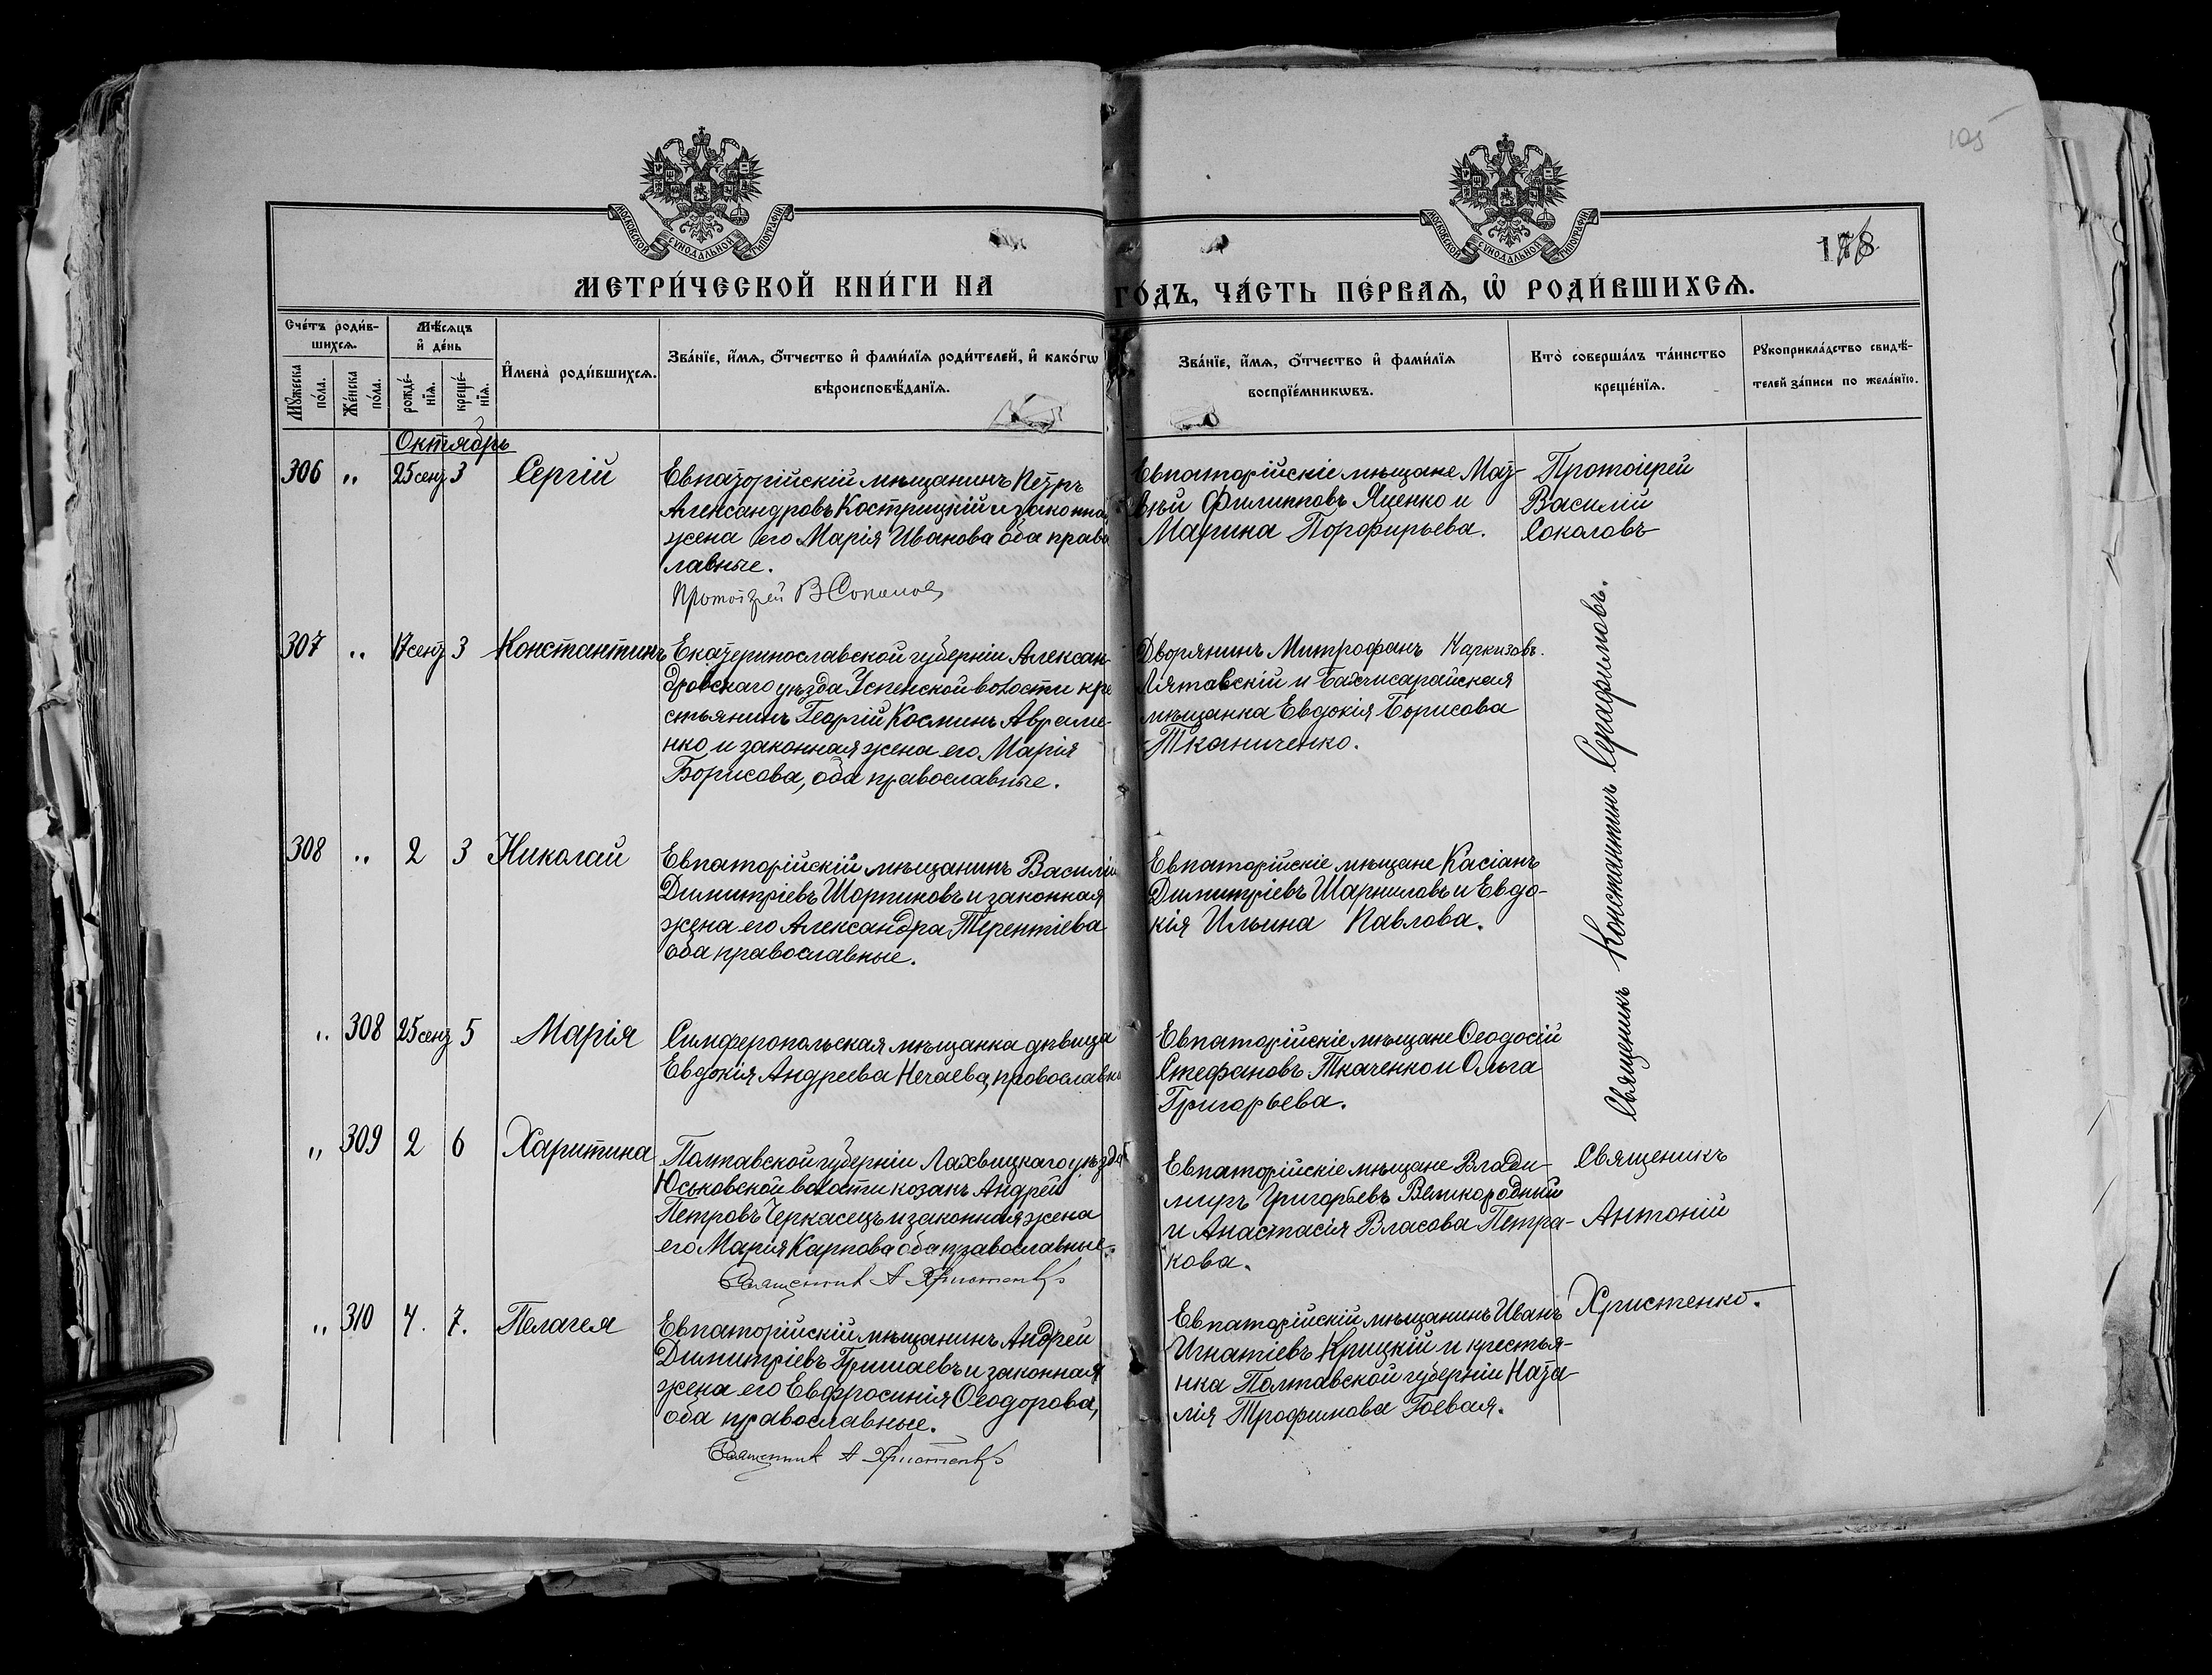 105
178
МОСКОВСКОЙ СѴНОДАЛЬНОЙ ТИПОГРАФІИ
МОСКОВСКОЙ СѴНОДАЛЬНОЙ ТИПОГРАФІИ
МЕТРИ́ЧЕСКОЙ КНИ́ГИ НА ГО́ДЪ, ЧА́СТЬ ПЕ́РВАѦ, Ѡ҆ РОДИ́ВШИХСѦ.
Сче́тъ роди́в-
шихсѧ.
Мꙋ́жеска
по́ла.
Же́нска
по́ла.
Мѣ́сѧцъ
и҆ де́нь
рожде́-
нїѧ.
креще́-
нїѧ.
И҆мена̀ роди́вшихсѧ.
Зва́нїе, и҆́мѧ, ѻ҆́тчество и҆ фами́лїѧ роди́телей, и҆ како́гѡ
вѣроисповѣ́данїѧ.
Зва́нїе, и҆́мѧ, ѻ҆́тчество и҆ фами́лїѧ
воспрїе́мникѡвъ.
Кто̀ соверша́лъ та́инство
креще́нїѧ.
Рꙋкоприкла́дство свидѣ́-
телей за́писи по жела́нїю.
Октябрь
306 " 25 сент 3 Сергій
Евпаторійскій мѣщанинъ Петръ
Александровъ Кострицкій и законная
жена его Марія Иванова оба право
лавные.
Протоіерей В Соколов
Евпаторійскіе мѣщане Мат-
вѣй Филипповъ Яценко и
Марина Порфирьева.
Протоіерей
Василій
Соколовъ
307 " 17 сент 3 Константинъ
Екатеринославской губерніи Алексан-
дровскаго уѣзда Успенской волости кре
стьянинъ Георгій Косминъ Авраме-
нко и законная жена его Марія
Борисова, оба православные.
Дворянинъ Митрофанъ
и Бахчисарайская
мѣщанка Евдокія Борисова
Тканиченко.
Священникъ Константинъ Серафимовъ.
308 " 2 3 Николай
Евпаторійскій мѣщанинъ Василій
Димитріевъ и законная
жена его Александра Терентіева
оба православные.
Евпаторійскіе мѣщане Касіанъ
Димитріевъ и Евдо-
кія Ильина Павлова.
" 308 25 сент 5 Марія
Симферопольская мѣщанка дѣвица
Евдокія Андреева Нечаева, православн
Евпаторійскіе мѣщане Ѳеодосій
Стефановъ Ткаченко и Ольга
Григорьева.
" 309 2 6 Харитина
Полтавской губерніи Лахвицкаго уѣзда
Юсьновской волости козакъ Андрей
Петровъ Черкасецъ и законная жена
его Марія Карпова оба православные.
Священник А Христенко
Евпаторійскіе мѣщане Влади-
миръ Григорьевъ Великородный
и Анастасія Власова Петра-
кова.
Священикъ
Антоній
Христенко.
" 310 4. 7. Пелагея
Евпаторійскій мѣщанинъ Андрей
Димитріевъ Гришаевъ и законная
жена его Евфросинія Ѳеодорова,
оба православные.
Священник А Христенко
Евпаторійскій мѣщанинъ Иванъ
Игнатіевъ Крицкій и крестья-
нка Полтавской губерніи Ната-
лія Трофимова Гоевая.